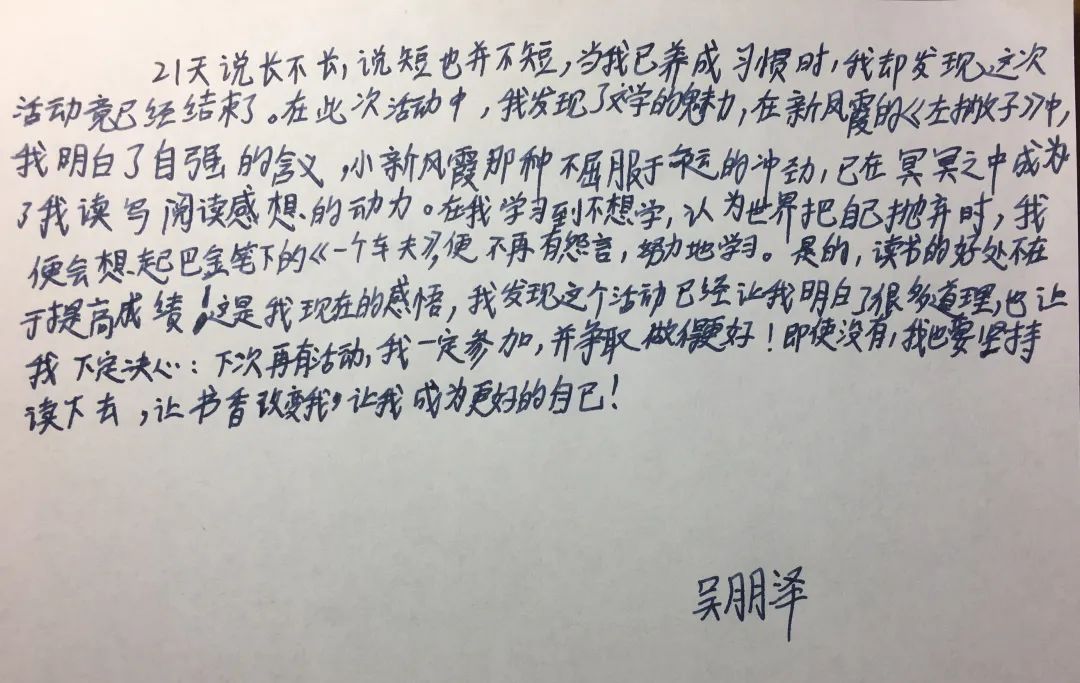 21天说长不长,说短也并不短,当我已养成习惯时,我却发现,这次
活动竟已经结束了。在此次活动中,我发现了文学的魅力,在新凤霞的《左撇子》中,
我明白了自强的含义,小新凤霞那种不屈服于命运的冲劲,已在冥冥之中成为
了我读写阅读感想的动力。在我学习到不想学,认为世界把自己抛弃时,我
便会想起巴金笔下的《一个车夫》,便不再有怨言,努力地学习。是的,读书的好处不在
于提高成绩!这是我现在的感悟,我发现这个活动已经让我明白了很多道理,也让
我下定决心:下次再有活动,我一定参加,并争取做得更好!即使没有,我也要坚持
读下去,让书香改变我,让我成为更好的自己!
吴朋泽